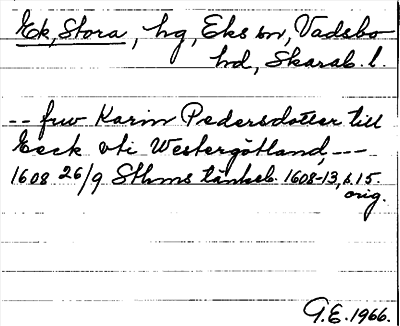 Ek, Stora, hg, Eks sn, Vadsbo
hd, Skarab. l.
-- fru Karin Pedersdotter till
Eeck vti Westergötland, ---
1608 26/9 Sthms tänkeb. 1608-13, s. 15.
orig.
G.E. 1966.